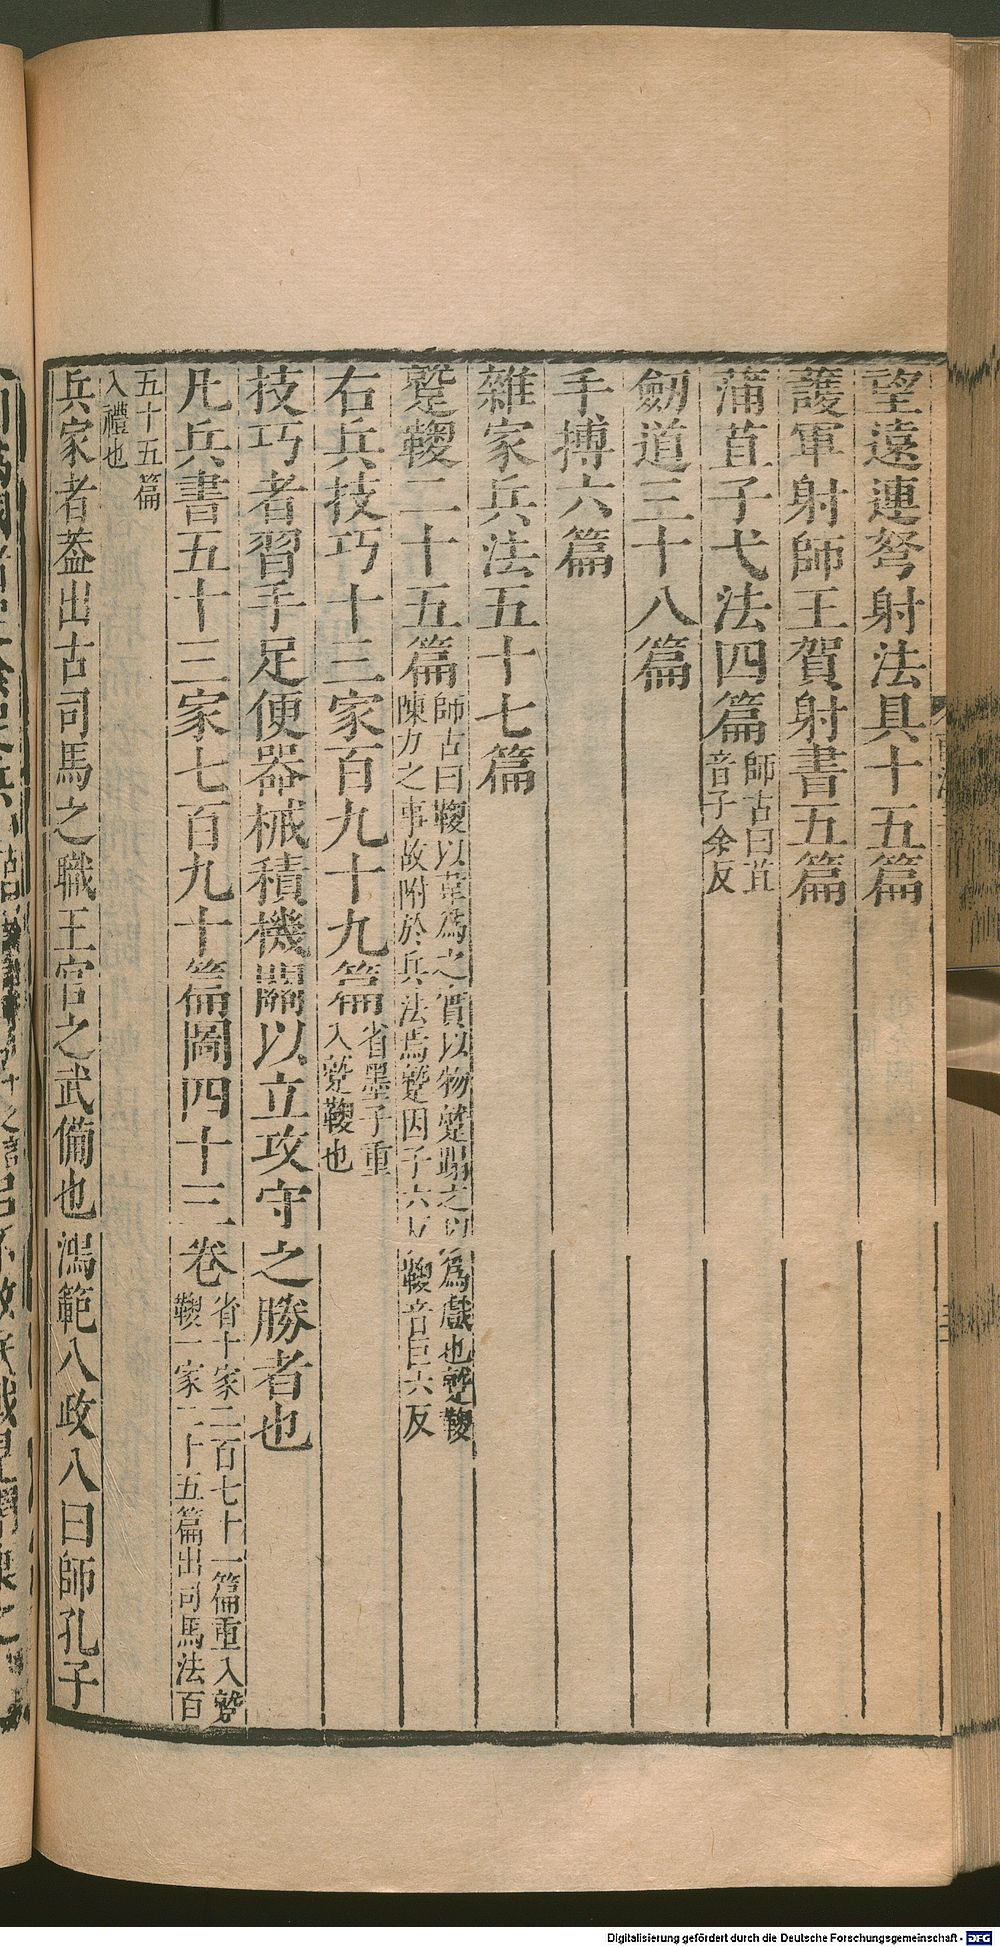 望遠連弩射法具十五篇
護軍射師王賀射書五篇
蒲苴子弋法四篇師古曰苴音子余反
劒道三十八篇
手搏六篇
雜家兵法五十七篇
蹵鞠二十五篇師古曰鞠以韋爲之實以物蹵蹋之以爲戲也蹵鞠陳力之事故附於兵法焉蹵因子六反鞠音巨六反
右兵技巧十三家百九十九篇省墨子重入蹵鞠也
技巧者習手足便器械積機關以立攻守之勝者也
凡兵書五十三家七百九十篇圖四十三卷省十家二百七十一篇重入蹵鞠一家二十五篇出司馬法百
五十五篇入禮也
兵家者葢出古司馬之職王官之武備也鴻範八政八曰師孔子
Digitalisierung gefördert durch die Deutsche Forschungsgemeinschaft - DFG